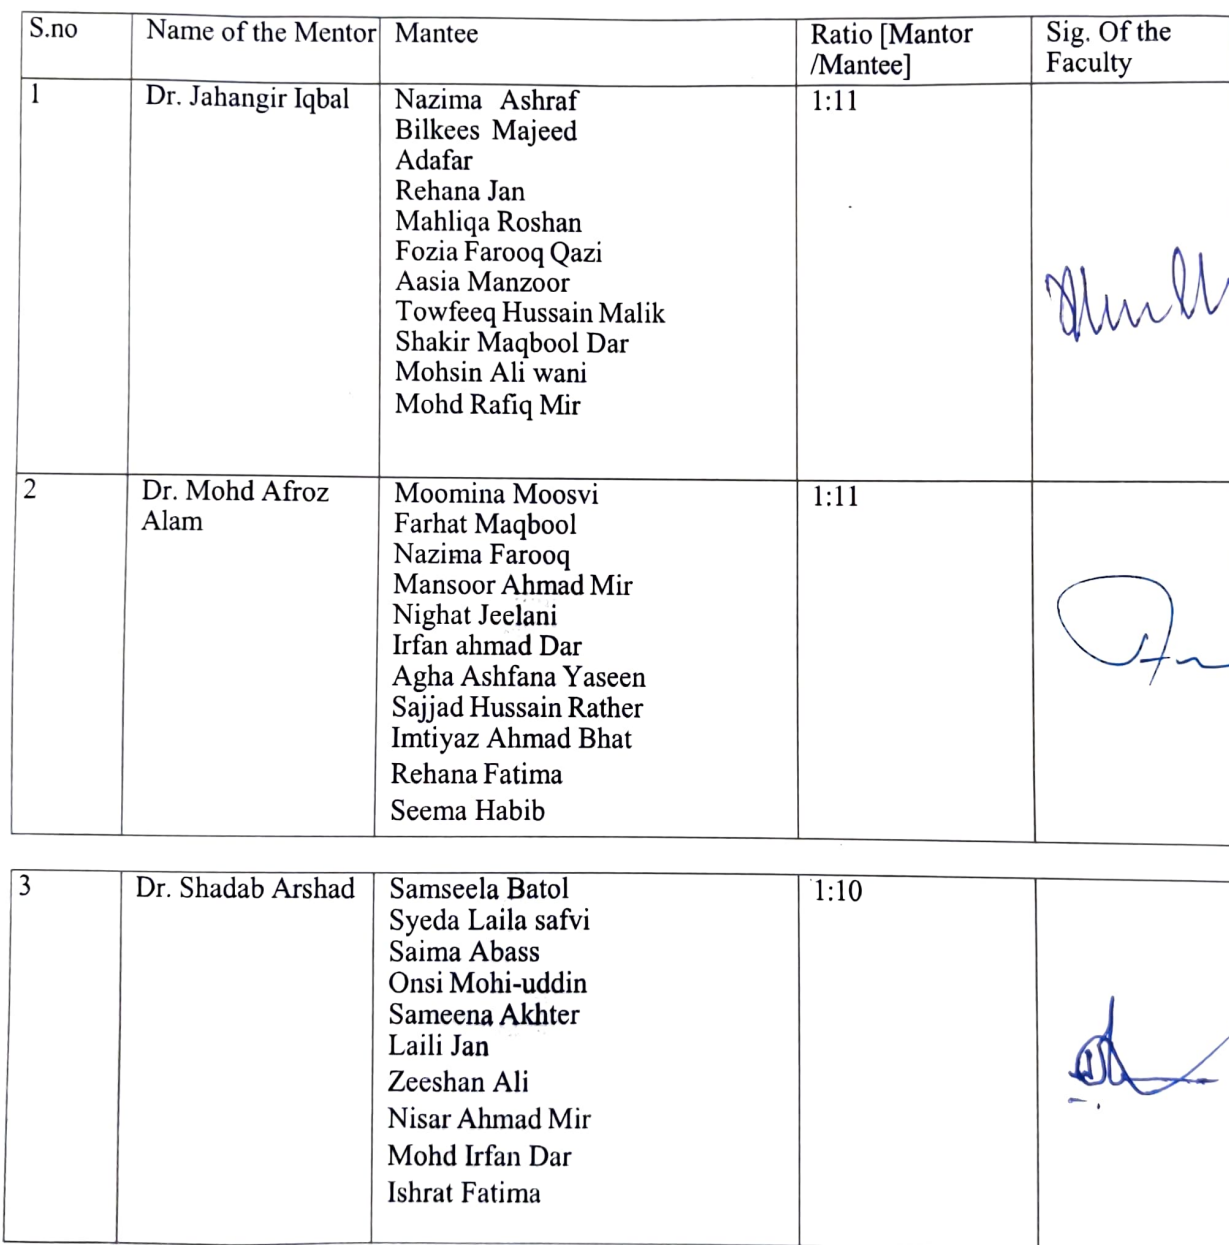 S.no Name of the Mentor Mantee Ratio [Mantor Sig. Of the
/Mantee] Faculty
1 Dr. Jahangir Iqbal Nazima Ashraf 1:11
Bilkees Majeed
Adafar
Rehana Jan
Mahliqa Roshan
Fozia Farooq Qazi
Aasia Manzoor
Towfeeq Hussain Malik
Shakir Maqbool Dar
Mohsin Ali wani
Mohd Rafiq Mir
2 Dr. Mohd Afroz Moomina Moosvi 1:11
Alam Farhat Maqbool
Nazima Farooq
Mansoor Ahmad Mir
Nighat Jeelani
Irfan ahmad Dar
Agha Ashfana Yaseen
Sajjad Hussain Rather
Imtiyaz Ahmad Bhat
Rehana Fatima
Seema Habib
3 Dr. Shadab Arshad Samseela Batol 1:10
Syeda Laila safvi
Saima Abass
Onsi Mohi-uddin
Sameena Akhter
Laili Jan
Zeeshan Ali
Nisar Ahmad Mir
Mohd Irfan Dar
Ishrat Fatima